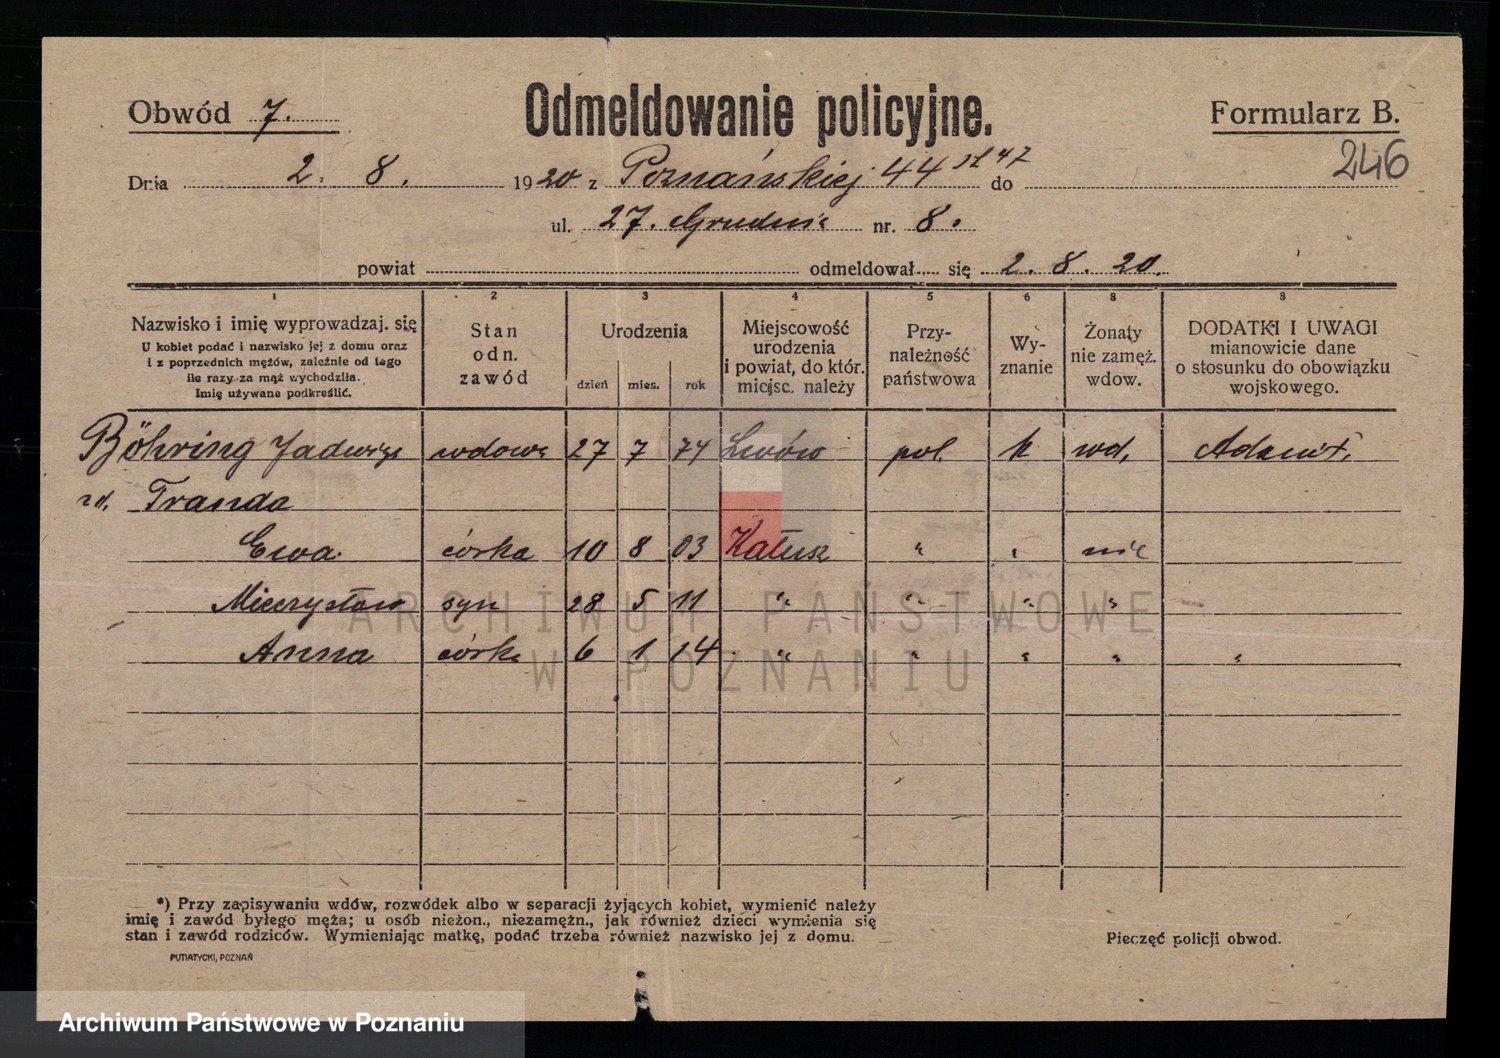 Obwód 7. Odmeldowanie policyjne. Formularz B.
246
Dnia 2. 8. 1920 z Poznańskiej 44 do
ul. 27. Grudnia nr. 8.
powiat odmeldował się 2. 8. 20.
1 2 3 4 5 6 8 8
Nazwisko i imię wyprowadzaj. się
U kobiet podać i nazwisko jej z domu oraz
i z poprzednich mężów, zależnie od tego
ile razy za mąż wychodziła.
Imię używane podkreślić.
Stan
odn.
zawód
Urodzenia
dzień mies. rok
Miejscowość
urodzenia
i powiat, do któr.
miejsc. należy
Przy-
należność
państwowa
Wy-
znanie
Żonaty
nie zamęż.
wdow.
DODATKI I UWAGI
mianowicie dane
o stosunku do obowiązku
wojskowego.
Böhring Jadwiga wdowa 27 7 74 Lwów pol. k wd.
zd. Tranda
Ewa córka 10 8 03 Kałusz " " nie
Mieczysław syn 28 5 11 " " " "
Anna córka 6 1 14 " " " " "
ARCHIWUM PAŃSTWOWE
W POZNANIU
*) Przy zapisywaniu wdów, rozwódek albo w separacji żyjących kobiet, wymienić należy
imię i zawód byłego męża; u osób nieżon., niezamężn., jak również dzieci wymienia się
stan i zawód rodziców. Wymieniając matkę, podać trzeba również nazwisko jej z domu.
Pieczęć policji obwod.
PUTIATYCKI, POZNAŃ
Archiwum Państwowe w Poznaniu